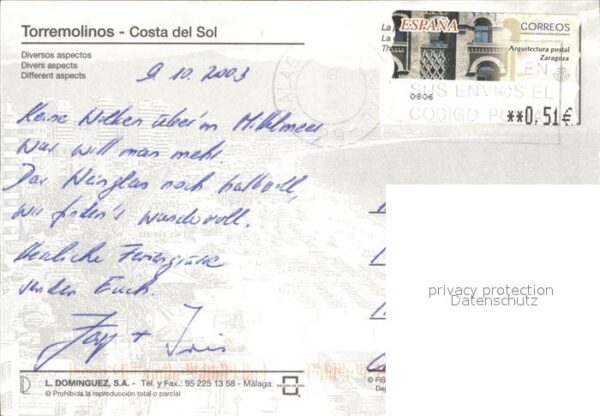 Torremolinos - Costa del Sol
Diversos aspectos
Divers aspects
Different aspects
9.10.2003
Keine Wolken über'm Mittelmeer
was will man mehr.
Das Weinglas noch halbvoll,
wir finden's wundervoll.
Herzliche Feriengrüsse
senden Euch
+ Iris
ESPAÑA
CORREOS
Arquitectura postal
Zaragoza
080€
**0,51€
EN
SUS ENVIOS EL
CODIGO
La
La
Th
privacy protection
Datenschutz
L. DOMINGUEZ, S.A. - Tel. y Fax.: 95 225 13 58 - Málaga
© Prohibida la reproducción total o parcial
© FIS
Dep